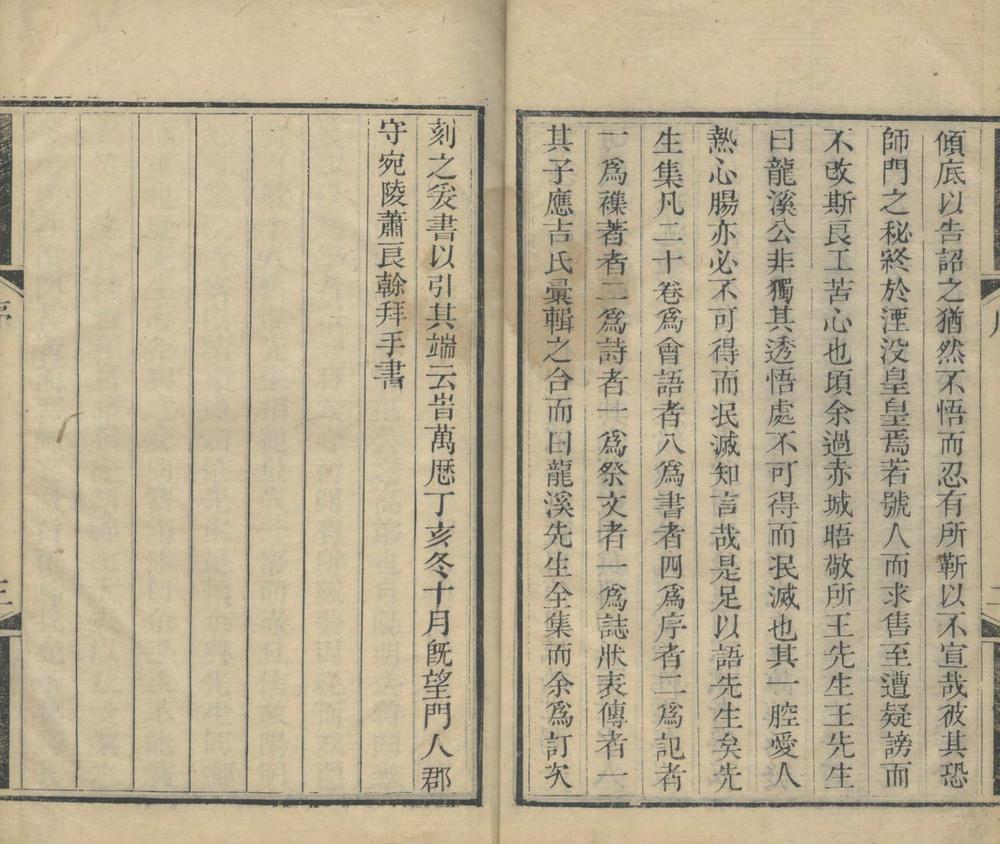 傾底以告詔之猶然不悟而忍有所靳以不宣哉彼其恐
師門之秘終於湮没皇皇焉若號人而求售至遭疑謗而
不改斯良工苦心也頃余過赤城晤敬所王先生王先生
曰龍溪公非獨其透悟處不可得而泯滅也其一腔愛人
熱心腸亦必不可得而泯滅知言哉是足以語先生矣先
生集凡二十卷爲會語者八爲書者四爲序者二爲記者
一爲襍著者二爲詩者一爲祭文者一爲誌狀表傳者一
其子應吉氏彚輯之台而曰龍溪先生全集而余爲訂次
刻之爰書以引其端云旹萬厯丁亥冬十月旣望門人郡
守宛陵蕭良榦拜手書
序
三